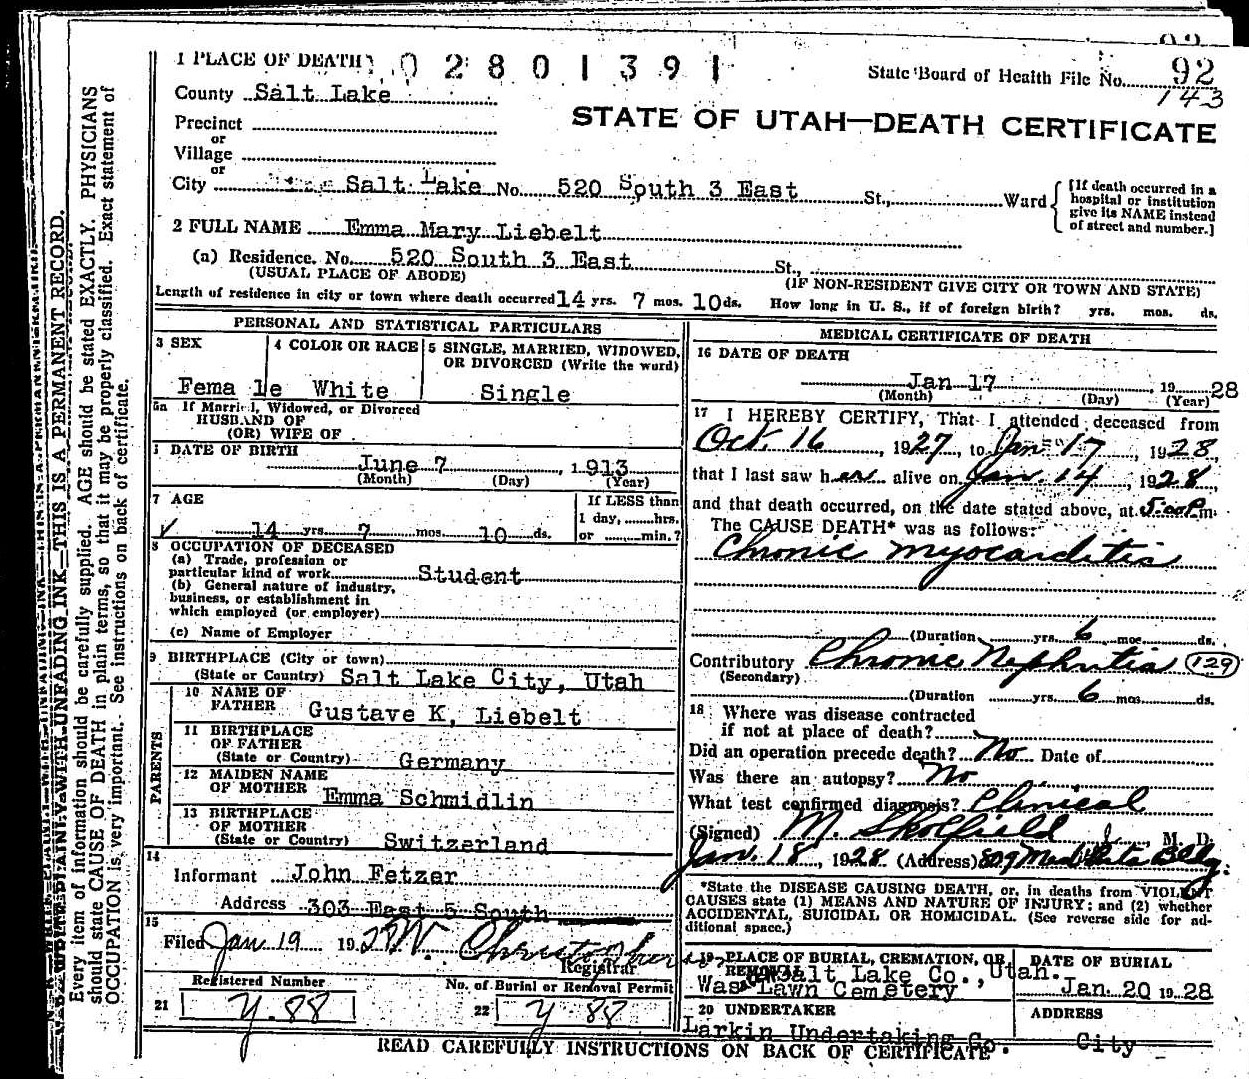 1 PLACE OF DEATH 02801391 State Board of Health File No. 92
143
County Salt Lake
STATE OF UTAH—DEATH CERTIFICATE
Precinct
or
Village
or
City Salt Lake No. 520 South 3 East St., Ward
[If death occurred in a
hospital or institution
give its NAME instead
of street and number.]
2 FULL NAME Emma Mary Liebelt
(a) Residence. No. 520 South 3 East St.,
(USUAL PLACE OF ABODE) (IF NON-RESIDENT GIVE CITY OR TOWN AND STATE)
Length of residence in city or town where death occurred 14 yrs. 7 mos. 10 ds. How long in U. S., if of foreign birth? yrs. mos. ds.
PERSONAL AND STATISTICAL PARTICULARS
3 SEX
Female
4 COLOR OR RACE
White
5 SINGLE, MARRIED, WIDOWED,
OR DIVORCED (Write the word)
Single
5a If Married, Widowed, or Divorced
HUSBAND OF
(OR) WIFE OF
DATE OF BIRTH
June 7, 1913
(Month) (Day) (Year)
7 AGE
14 yrs. 7 mos. 10 ds.
If LESS than
1 day, hrs.
or min.?
8 OCCUPATION OF DECEASED
(a) Trade, profession or
particular kind of work Student
(b) General nature of industry,
business, or establishment in
which employed (or employer)
(c) Name of Employer
9 BIRTHPLACE (City or town)
(State or Country) Salt Lake City, Utah
PARENTS
10 NAME OF
FATHER Gustave K. Liebelt
11 BIRTHPLACE
OF FATHER
(State or Country) Germany
12 MAIDEN NAME
OF MOTHER Emma Schmidlin
13 BIRTHPLACE
OF MOTHER
(State or Country) Switzerland
14
Informant John Fetzer
Address 303 East 5 South
15
Filed Jan 19 19
Registrar
Registered Number
21 Y. 88
No. of Burial or Removal Permit
22 Y. 88
MEDICAL CERTIFICATE OF DEATH
16 DATE OF DEATH
Jan 17 1928
(Month) (Day) (Year)
17 I HEREBY CERTIFY, That I attended deceased from
Oct. 16, 1927, to Jan 17, 1928,
that I last saw her alive on Jan. 14, 1928,
and that death occurred, on the date stated above, at 5:00 P.m.
The CAUSE DEATH* was as follows:
Chronic myocarditis
(Duration yrs. 6 mos. ds.
Contributory Chronic Nephritis 129
(Secondary)
(Duration yrs. 6 mos. ds.
18 Where was disease contracted
if not at place of death?
Did an operation precede death? No Date of
Was there an autopsy? No
What test confirmed diagnosis? Clinical
(Signed) M. Skolfield M. D.
Jan. 18, 1928 (Address) 809 Med Arts Bldg.
*State the DISEASE CAUSING DEATH, or, in deaths from VIOLENT
CAUSES state (1) MEANS AND NATURE OF INJURY; and (2) whether
ACCIDENTAL, SUICIDAL OR HOMICIDAL. (See reverse side for ad-
ditional space.)
19 PLACE OF BURIAL, CREMATION, OR
REMOVAL Salt Lake Co., Utah.
Lawn Cemetery
DATE OF BURIAL
Jan. 20 1928
20 UNDERTAKER
Larkin Undertaking Co.
ADDRESS
City
READ CAREFULLY INSTRUCTIONS ON BACK OF CERTIFICATE
THIS IS A PERMANENT RECORD.
Every item of information should be carefully supplied. AGE should be stated EXACTLY. PHYSICIANS
should state CAUSE OF DEATH in plain terms, so that it may be properly classified. Exact statement of
OCCUPATION is very important. See instructions on back of certificate.